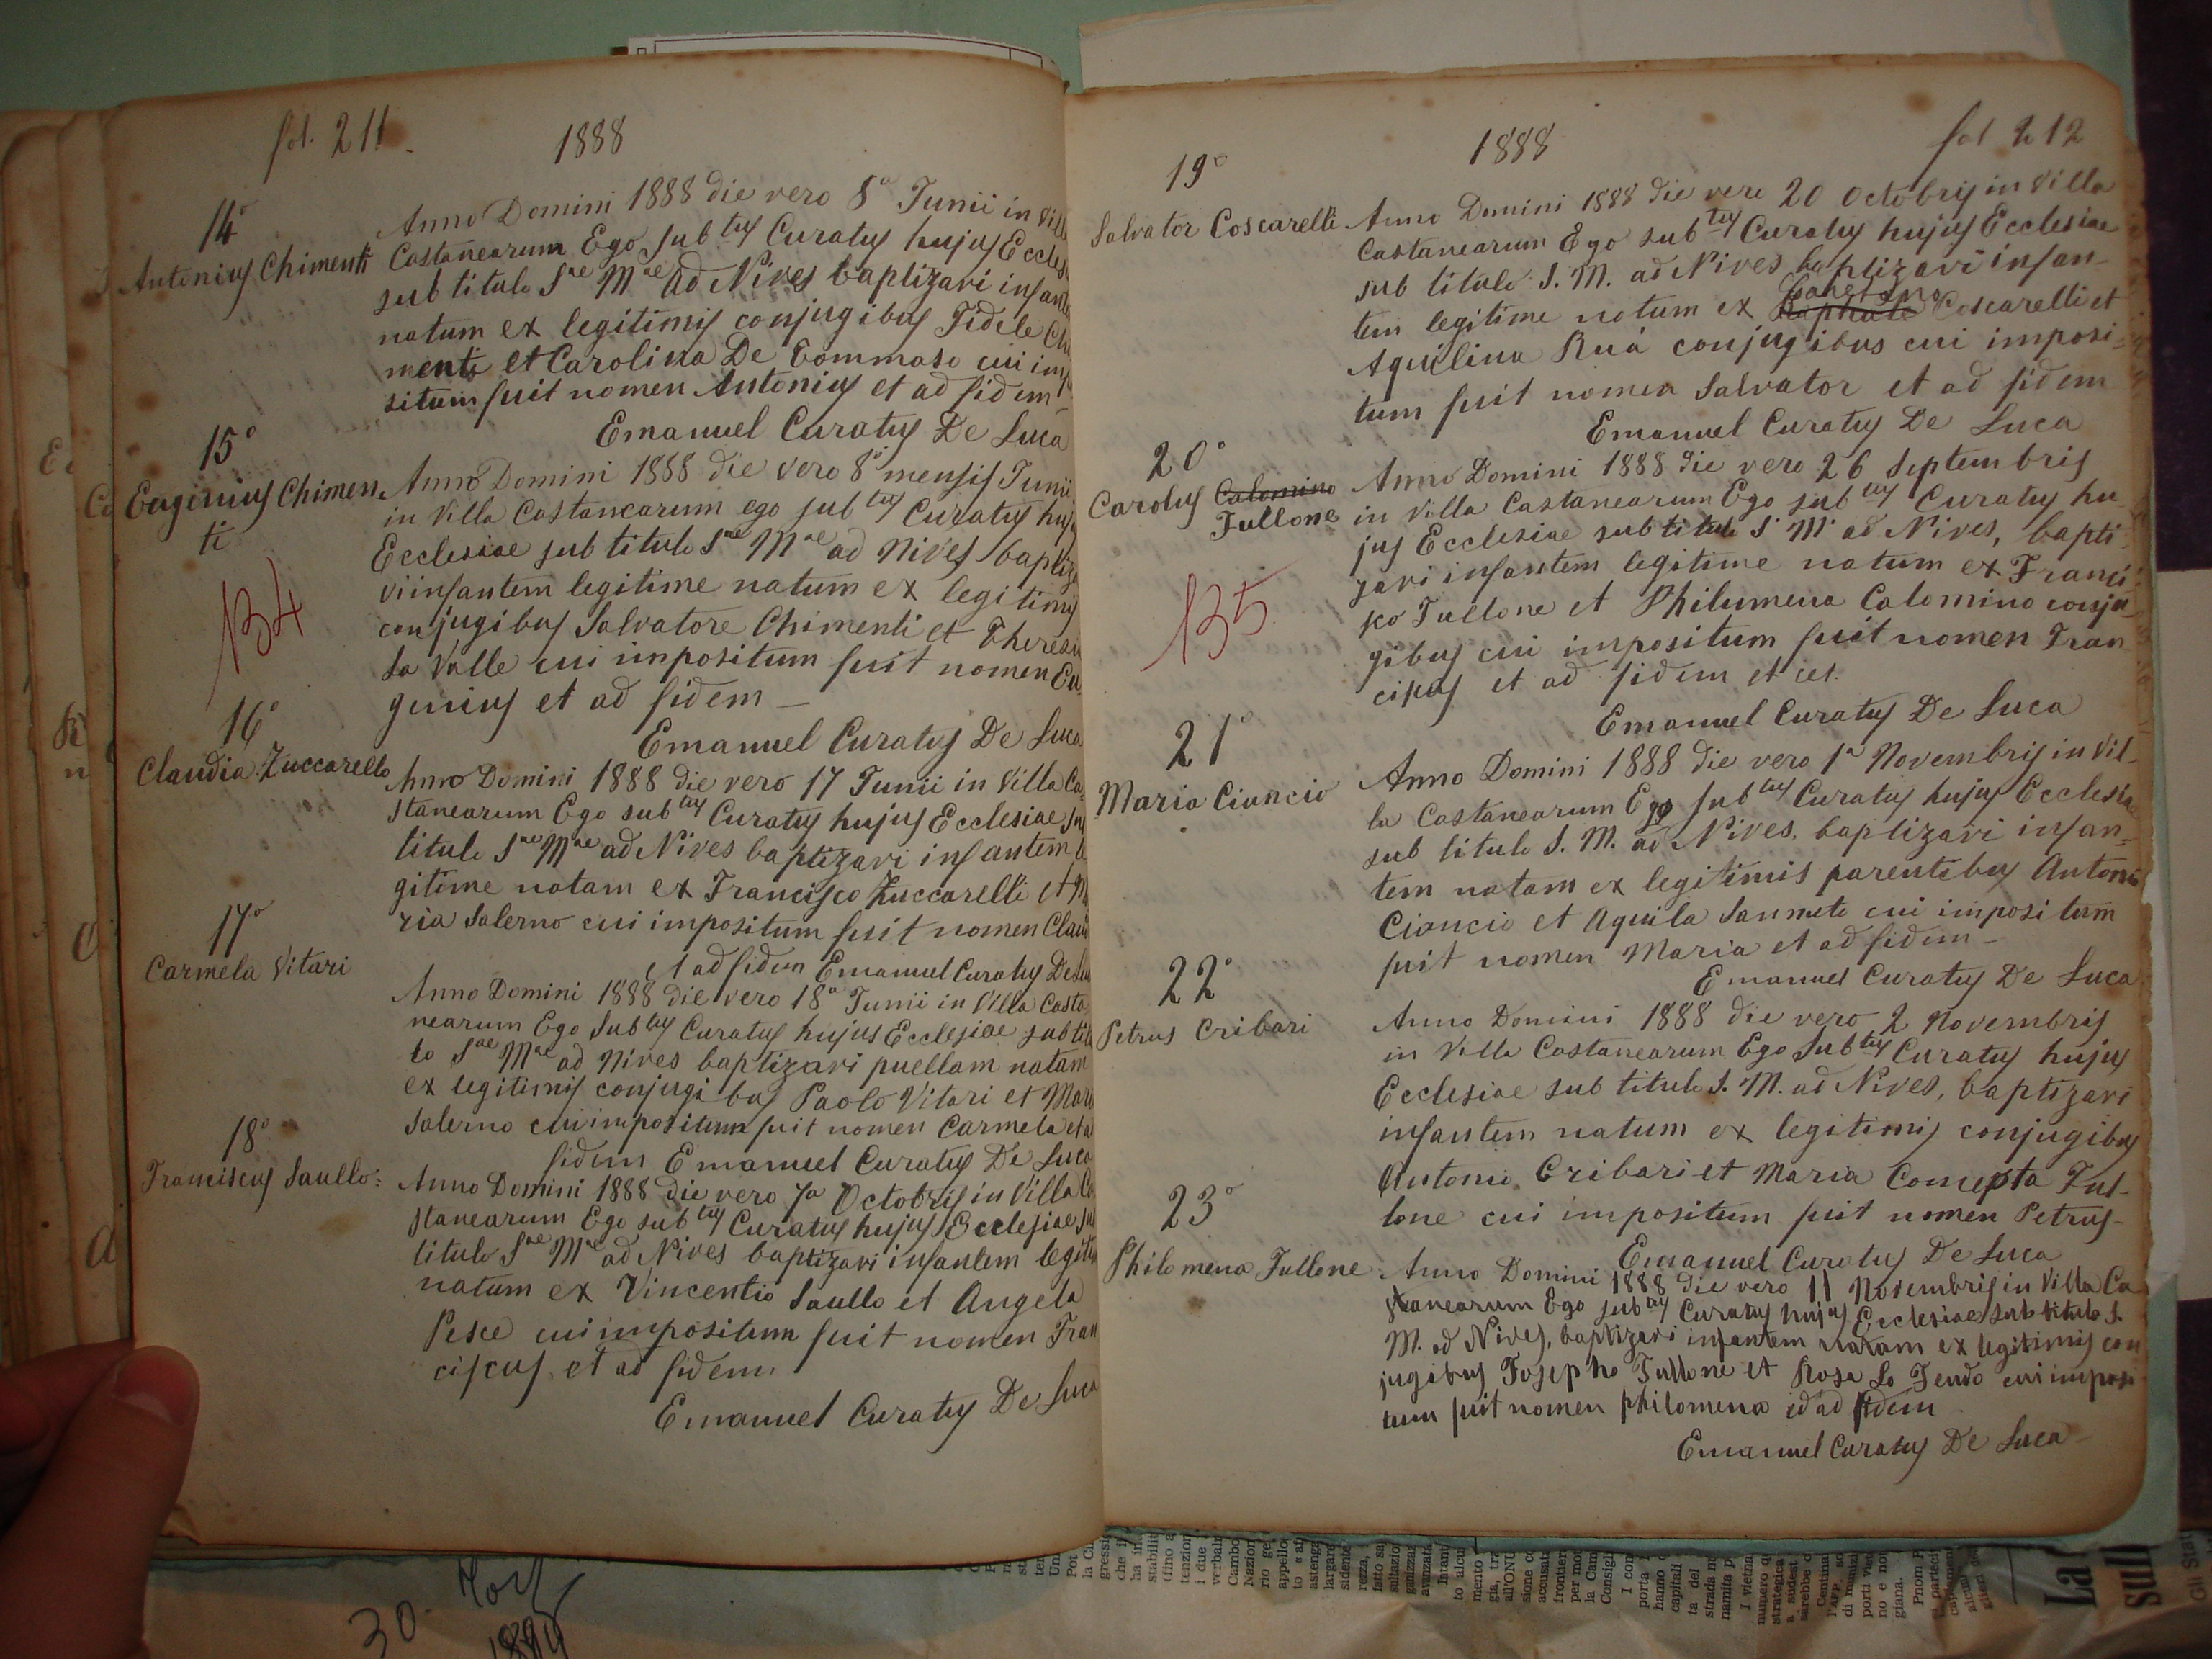 fol. 211.
1888
14°
Antonius Chimenti
Anno Domini 1888 die vero 8ª Junii in Villa
Castanearum Ego subtus Curatus hujus Eccles
sub titulo Sae Mae ad Nives baptizavi infante
natum ex legitimis conjugibus Fidele Chi
menti et Carolina De Tommaso cui impo
situm fuit nomen Antonius et ad fidem
Emanuel Curatus De Luca
15°
Eugenius Chimen
ti
134
Anno Domini 1888 die vero 8ª mensis Junii
in Villa Castanearum ego subtus Curatus huju
Ecclesiae sub titulo Sae Mae ad Nives baptiza
vi infantem legitime natum ex legitimis
conjugibus Salvatore Chimenti et Theresia
La Valle cui impositum fuit nomen Eu
genius et ad fidem
Emanuel Curatus De Luca
16°
Claudia Zuccarello
Anno Domini 1888 die vero 17 Junii in Villa Ca
stanearum Ego subtus Curatus hujus Ecclesiae sub
titulo Sae Mae ad Nives baptizavi infantem le
gitime natam ex Francisco Zuccarelli et Ma
ria Salerno cui impositum fuit nomen Claudi
et ad fidem Emanuel Curatus De Luca
17°
Carmela Vitari
Anno Domini 1888 die vero 18ª Junii in Villa Casta
nearum Ego Subtus Curatus hujus Ecclesiae sub titu
lo Sae Mae ad Nives baptizavi puellam natam
ex legitimis conjugibus Paolo Vitari et Mari
Salerno cui impositum fuit nomen Carmela et a
fidem Emanuel Curatus De Luca
18°
Franciscus Saullo:
Anno Domini 1888 die vero 7ª Octobris in Villa Ca
stanearum Ego subtus Curatus hujus Ecclesiae sub
titulo Sae Mae ad Nives baptizavi infantem legitim
natum ex Vincentio Saullo et Angela
Pesce cui impositum fuit nomen Fran
ciscus et ad fidem
Emanuel Curatus De Luca
fol 212
1888
19°
Salvator Coscarelli
Anno Domini 1888 die vero 20 Octobris in Villa
Castanearum Ego subtus Curatus hujus Ecclesiae
sub titulo S. M. ad Nives baptizavi infan-
tem legitime natum ex Raphaele Gaetano Coscarelli et
Aquilina Ruá conjugibus cui imposi-
tum fuit nomen Salvator et ad fidem
Emanuel Curatus De Luca
20°
Carolus Calomino
Fullone
135
Anno Domini 1888 die vero 26 Septembris
in Villa Castanearum Ego subtus Curatus hu
jus Ecclesiae sub titulo S. M. ad Nives, bapti
zavi infantem legitime natum ex Franci
sco Fullone et Philumena Calomino conju
gibus cui impositum fuit nomen Fran
ciscus et ad fidem et cet.
Emanuel Curatus De Luca
21°
Maria Ciancio
Anno Domini 1888 die vero 1ª Novembris in Vil-
la Castanearum Ego subtus Curatus hujus Ecclesiae
sub titulo S. M. ad Nives, baptizavi infan-
tem natam ex legitimis parentibus Antonio
Ciancio et Aquila Sanmeto cui impositum
fuit nomen Maria et ad fidem
Emanuel Curatus De Luca
22°
Petrus Cribari
Anno Domini 1888 die vero 2 Novembris
in Villa Castanearum Ego Subtus Curatus hujus
Ecclesiae sub titulo S. M. ad Nives, baptizavi
infantem natum ex legitimis conjugibus
Antonio Cribari et Maria Concepta Ful-
lone cui impositum fuit nomen Petrus
Emanuel Curatus De Luca
23°
Philomena Fullone
Anno Domini 1888 die vero 11 Novembris in Villa Ca
stanearum Ego subtus Curatus hujus Ecclesiae sub titulo S.
M. ad Nives, baptizavi infantem natam ex legitimis con
jugibus Josepho Fullone et Rosa Lo Feudo cui imposi
tum fuit nomen philomena id ad fidem
Emanuel Curatus De Luca
30
La
sull